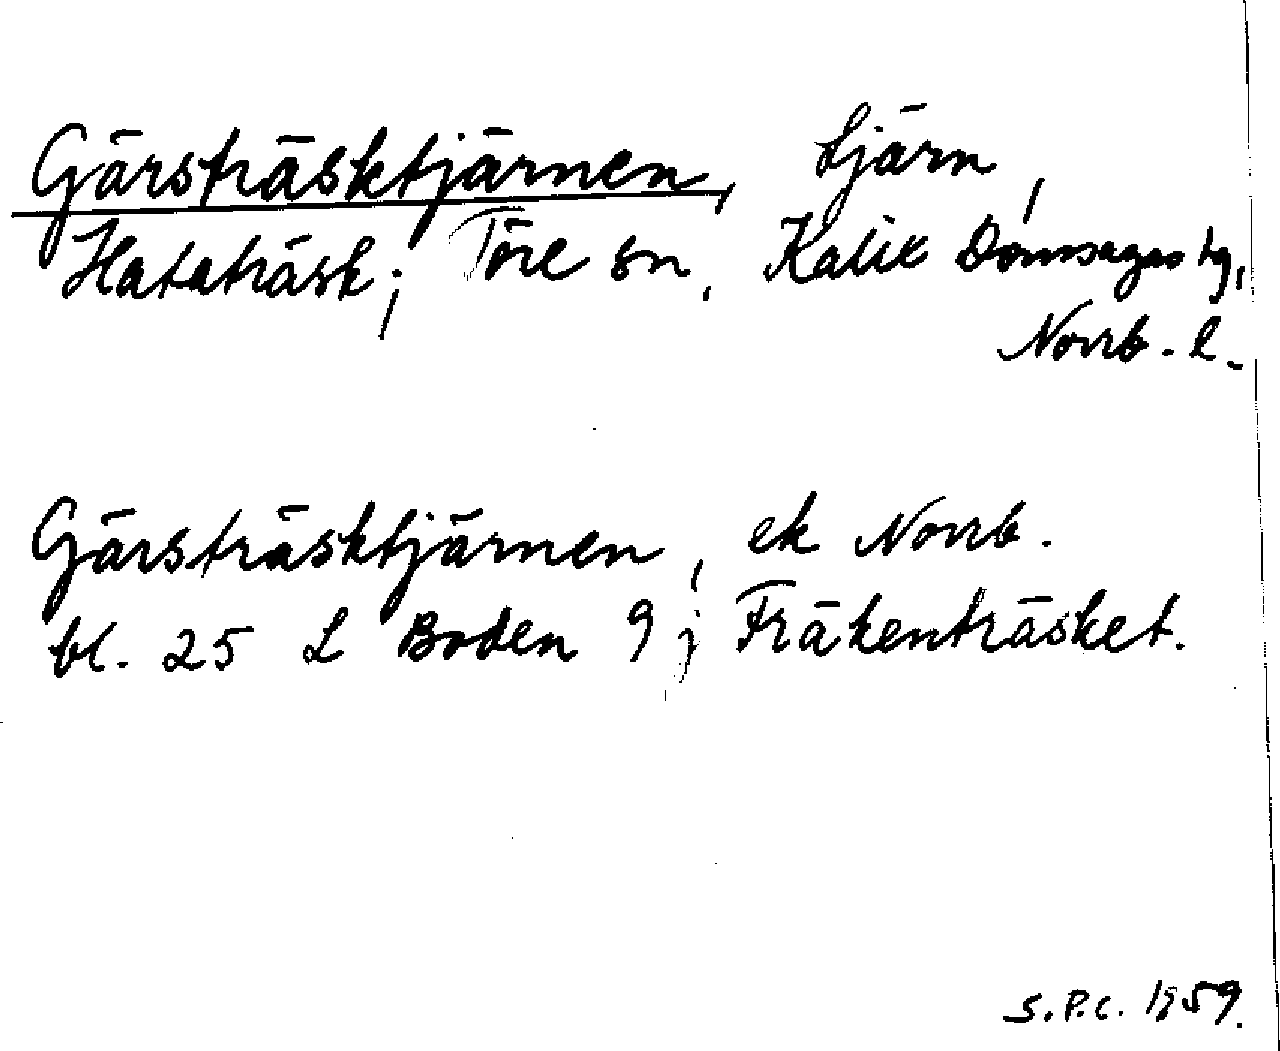 Gärsträsktjärnen, tjärn,
Hataträsk; Töre sn, Kalix Domsagas tg,
Norrb. l.
Gärsträsktjärnen, ek Norrb.
bl. 25 L Boden 9; Fräkenträsket.
S.P.C. 1959.